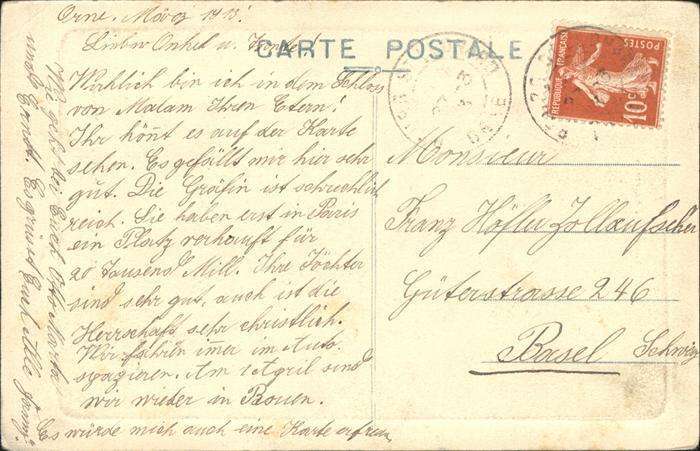 Orne. März 1913.
CARTE POSTALE
Lieber Onkel u.
Wirklich bin ich in dem Schloss
von Madam
Ihr könt es auf der Karte
sehen. Es gefällt mir hier sehr
gut. Die Gräfin ist schrecklich
reich. Sie haben erst in Paris
ein Platz verkauft für
20 tausend Mill. Ihre Töchter
sind sehr gut, auch ist die
Herrschaft sehr christlich.
Wir fahren immer im Auto
spazieren. Am 1 April sind
wir wieder in Rouen.
Es würde mich auch eine Karte erfreu
Wie geht es bei Euch Otto Martha
und Ernst. Es grüsst Euch Alle
Monsieur
Franz Höfler Zollaufseher
Güterstrasse 246
Basel Schweiz
REPUBLIQUE FRANÇAISE
POSTES
10c